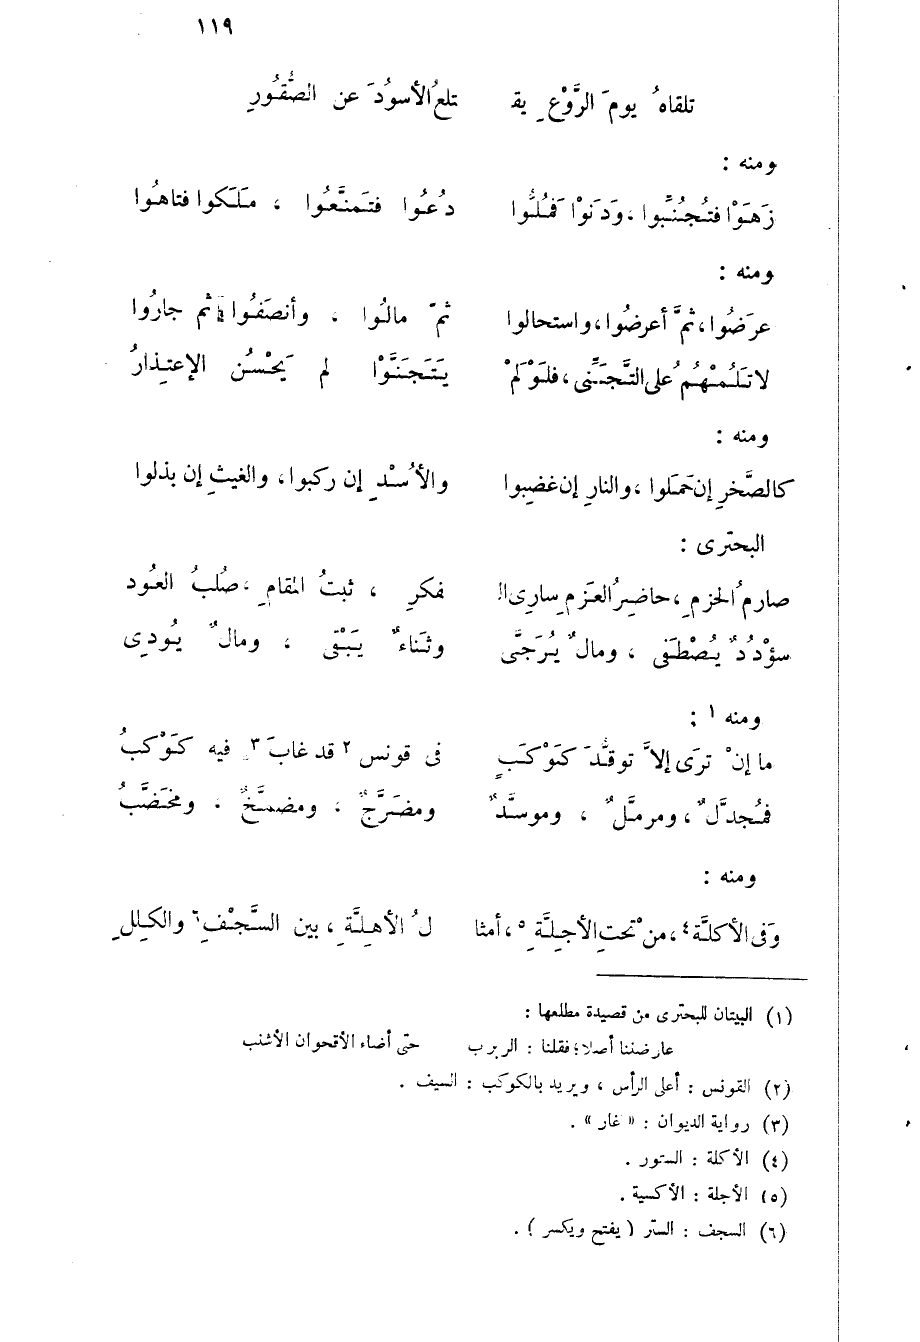 ١١٩
تلقاهُ يومَ الرَّوْعِ يقـ تلعُ الأسودَ عن الصُّقُورِ
ومنه :
زَهَوْا فتُجُنِّبوا ، ودَنَوْا فمُلُّوا دُعُوا فتَمنَّعُوا ، مَلَكوا فتاهُوا
ومنه :
عرَضُوا ، ثمَّ أعرضُوا ، واستحالوا ثمّ مالُوا ، وأنصَفُوا ثم جارُوا
لا تلُمْهُمُ على التَّجَنِّى ، فلَوْ لَمْ يَتَجَنَّوْا لم يَحْسُنِ الإعتِذارُ
ومنه :
كالصَّخرِ إن حمَلوا ، والنارِ إن غضِبوا والأُسْدِ إن ركبوا ، والغيثِ إن بذلوا
البحترى :
صارمُ الحزمِ ، حاضِرُ العَزمِ سارِى الـ فكرِ ، ثبتُ المقامِ ، صُلبُ العُود
سؤْدُدٌ يُصْطَفَى ، ومالٌ يُرَجَّى وثَناءٌ يَبْقَى ، ومالٌ يُودِى
ومنه ١ :
ما إنْ ترَى إلاَّ توقُّدَ كَوْكَبٍ فى قونس ٢ قد غابَ ٣ فيه كَوْكَبُ
فمُجدَّلٌ ، ومرملٌ ، وموسَّدٌ ومضَرَّجٌ ، ومضمَّخٌ ، ومخَضَّبُ
ومنه :
وَفى الأكلَّة ٤ ، منْ تحتِ الأجِلَّةِ ٥ ، أمثا لُ الأهِلَّةِ ، بين السَّجْفِ ٦ والكِللِ
(١) البيتان للبحترى من قصيدة مطلعها :
عارضننا أصلا ؛ فقلنا : الربرب حتى أضاء الأقحوان الأشنب
(٢) القونس : أعلى الرأس ، ويريد بالكوكب : السيف .
(٣) رواية الديوان : « غار » .
(٤) الأكلة : الستور .
(٥) الأجلة : الأكسية .
(٦) السجف : الستر ( يفتح ويكسر ) .